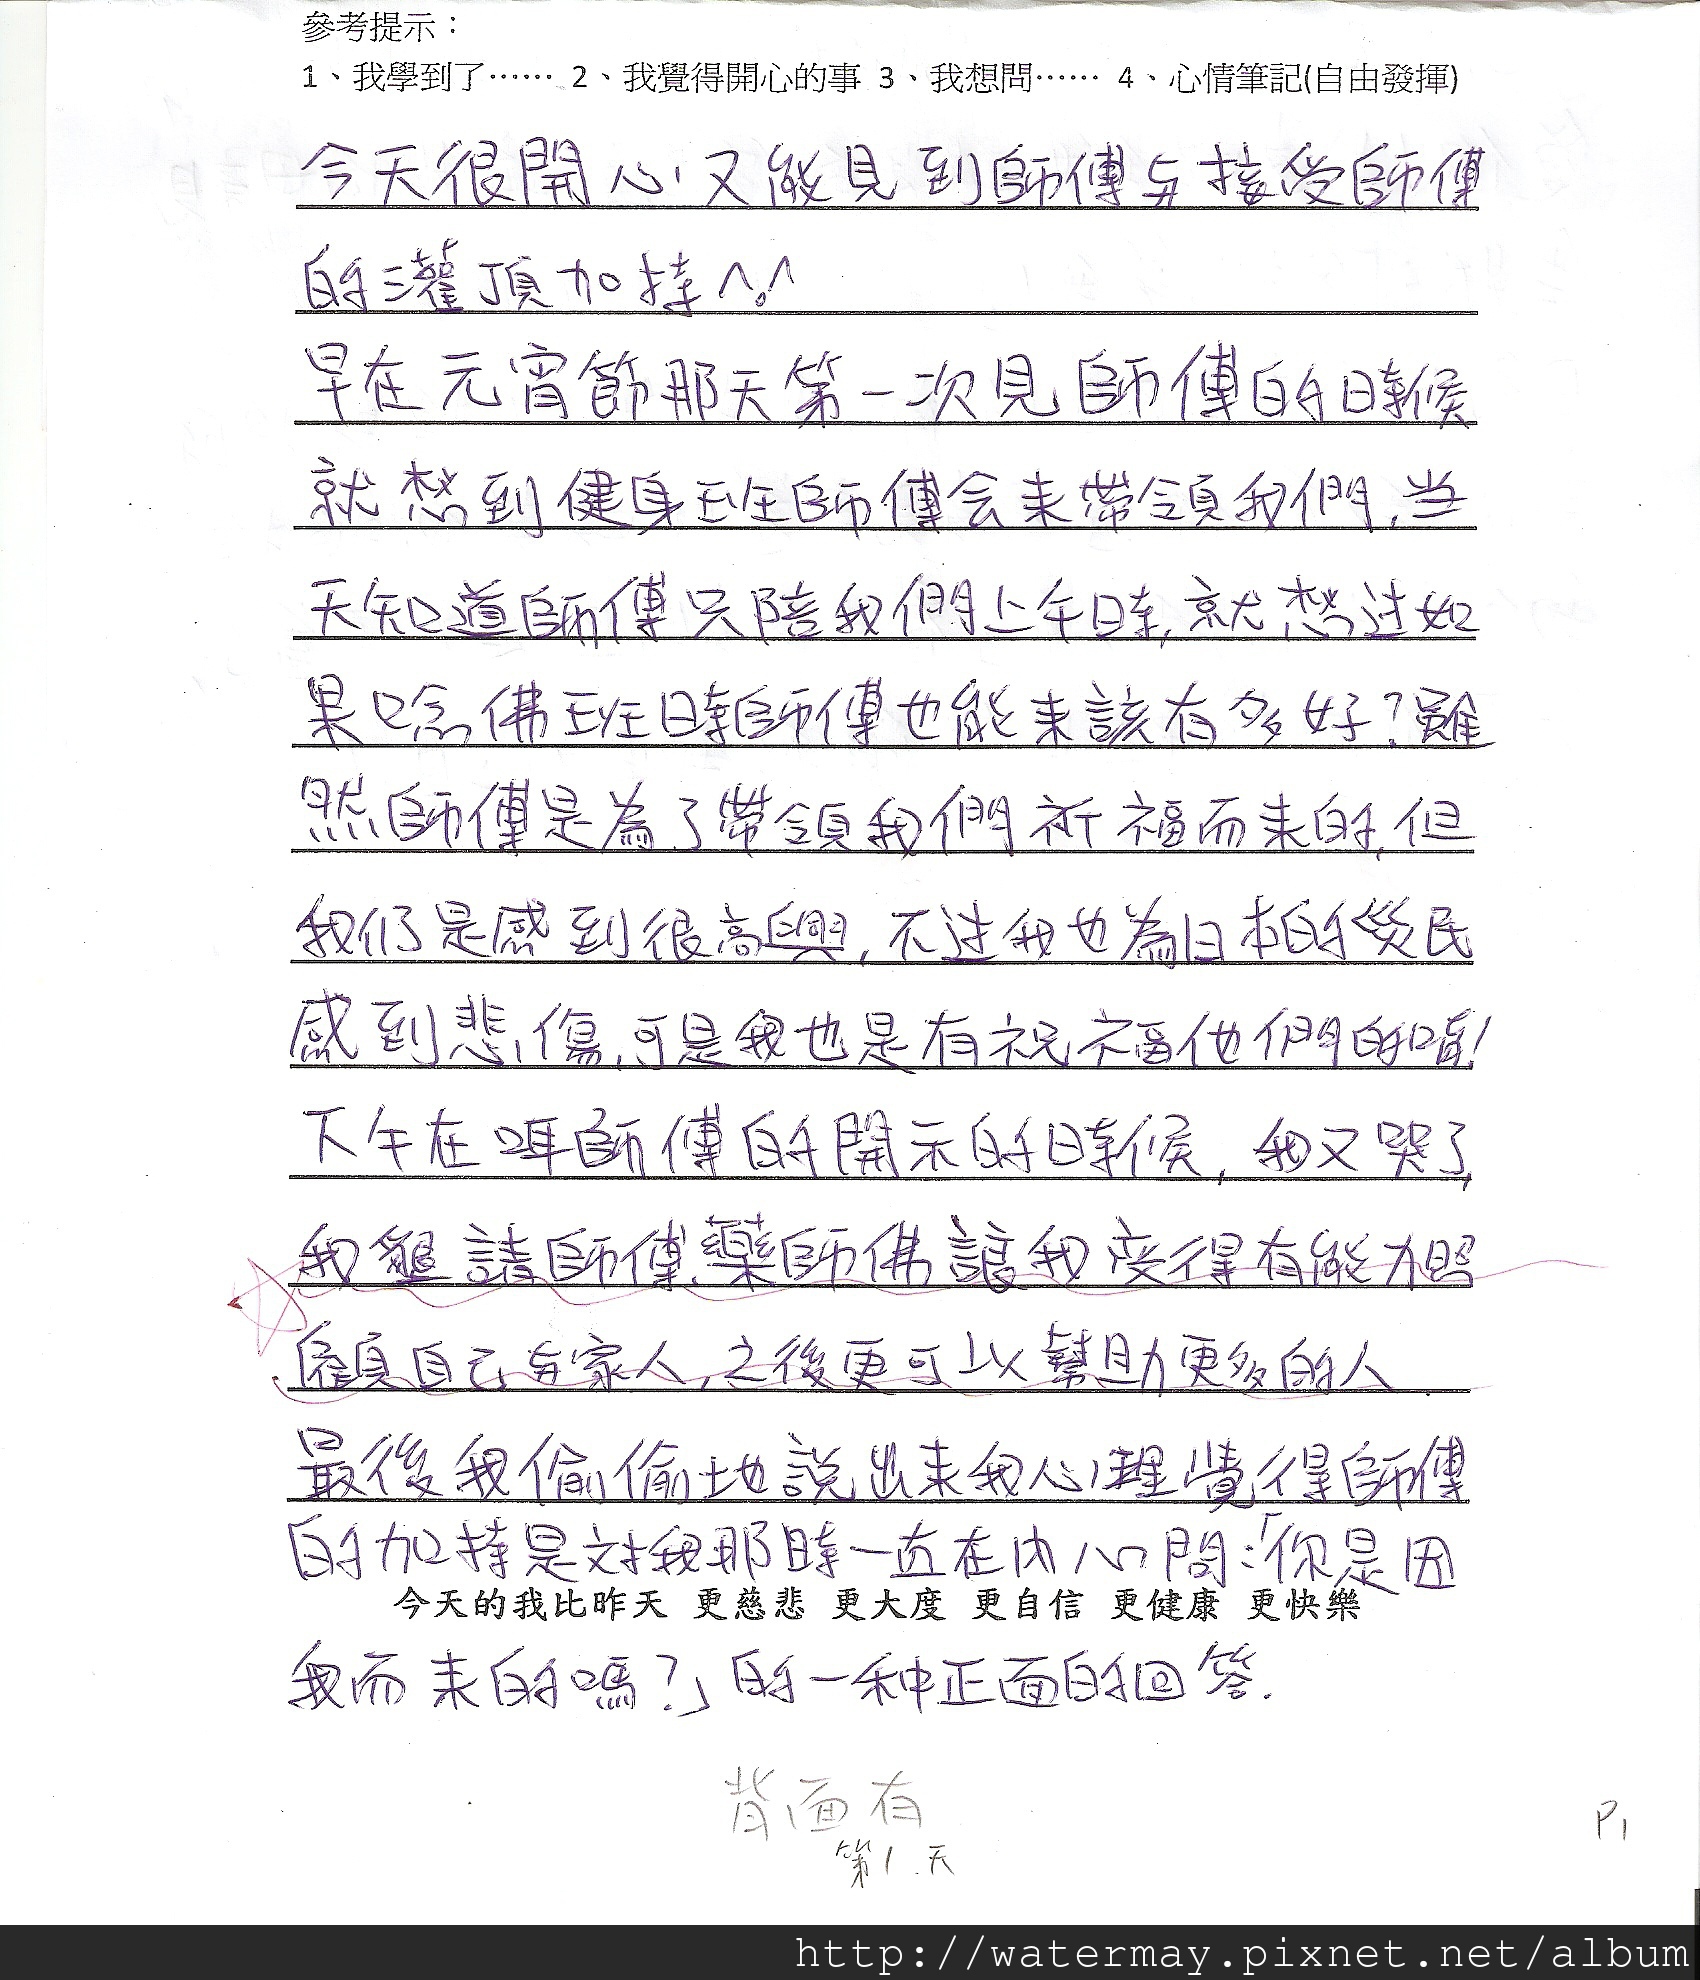 參考提示：
1、我學到了…… 2、我覺得開心的事 3、我想問…… 4、心情筆記(自由發揮)
今天很開心又能見到師傅与接受師傅
的灌頂加持^.^
早在元宵節那天第一次見師傅的時候
就想到健身班師傅会来帶領我們,当
天知道師傅只陪我們上午時,就想过如
果唸佛班時師傅也能来該有多好?雖
然師傅是為了帶領我們祈福而来的,但
我们是感到很高興,不过我也為日本的災民
感到悲傷,可是我也是有祝福他們的唷!
下午在 師傅的開示的時候,我又哭了,
我懇請師傅、藥師佛讓我变得有能力照
顧自己与家人,之後更可以幫助更多的人
最後我偷偷地說出来我心裡覺得師傅
的加持是对我那時一直在内心問:「你是因
今天的我比昨天 更慈悲 更大度 更自信 更健康 更快樂
我而来的嗎?」的一种正面的回答.
背面有
第1.天
P1
http://watermay.pixnet.net/album